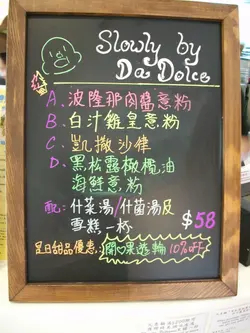 Slowly by
Da Dolce
A. 波隆那肉醬意粉
B. 白汁雞皇意粉
C. 凱撒沙律
D. 黑松露橄欖油
海鮮意粉
配: 什菜湯/什菌湯及
雪糕一杯 $58
是日甜品優惠: 開心果透輪 10% OFF